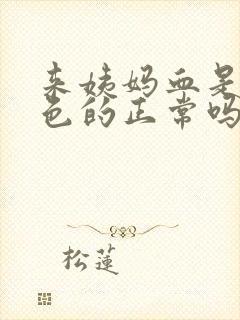 来姨妈血是
色的正常吗
松莲